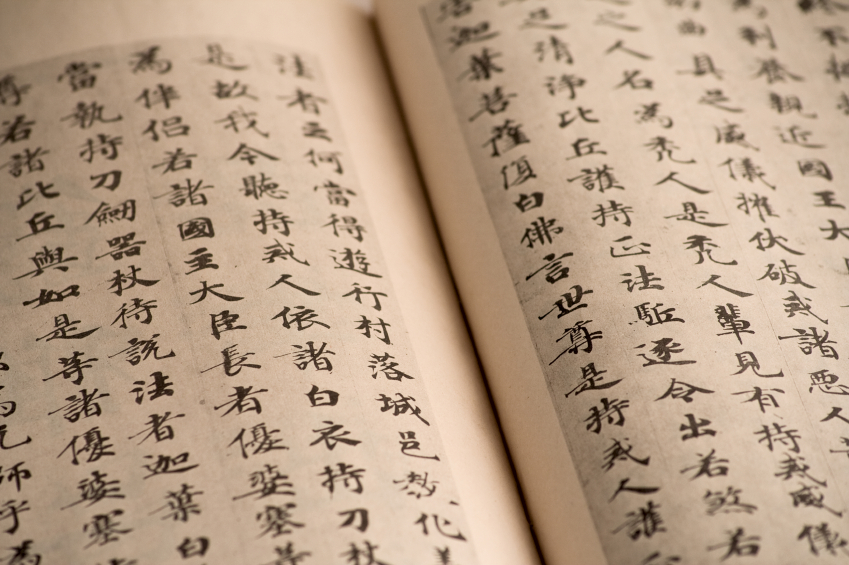 利養親近國王大
曲具足威儀擁伏破戒諸惡人
之人名為禿人是禿人輩見有持戒威儀
足清淨比丘護持正法駈逐令出若煞若
迦葉菩薩復白佛言世尊是持戒人護
法者云何當得遊行村落城邑教化
是故我今聽持戒人依諸白衣持刀杖
為伴侶若諸國王大臣長者優婆塞等
當執持刀劒器杖待說法者迦葉白
尊若諸比丘與如是等諸優婆塞
師乎為